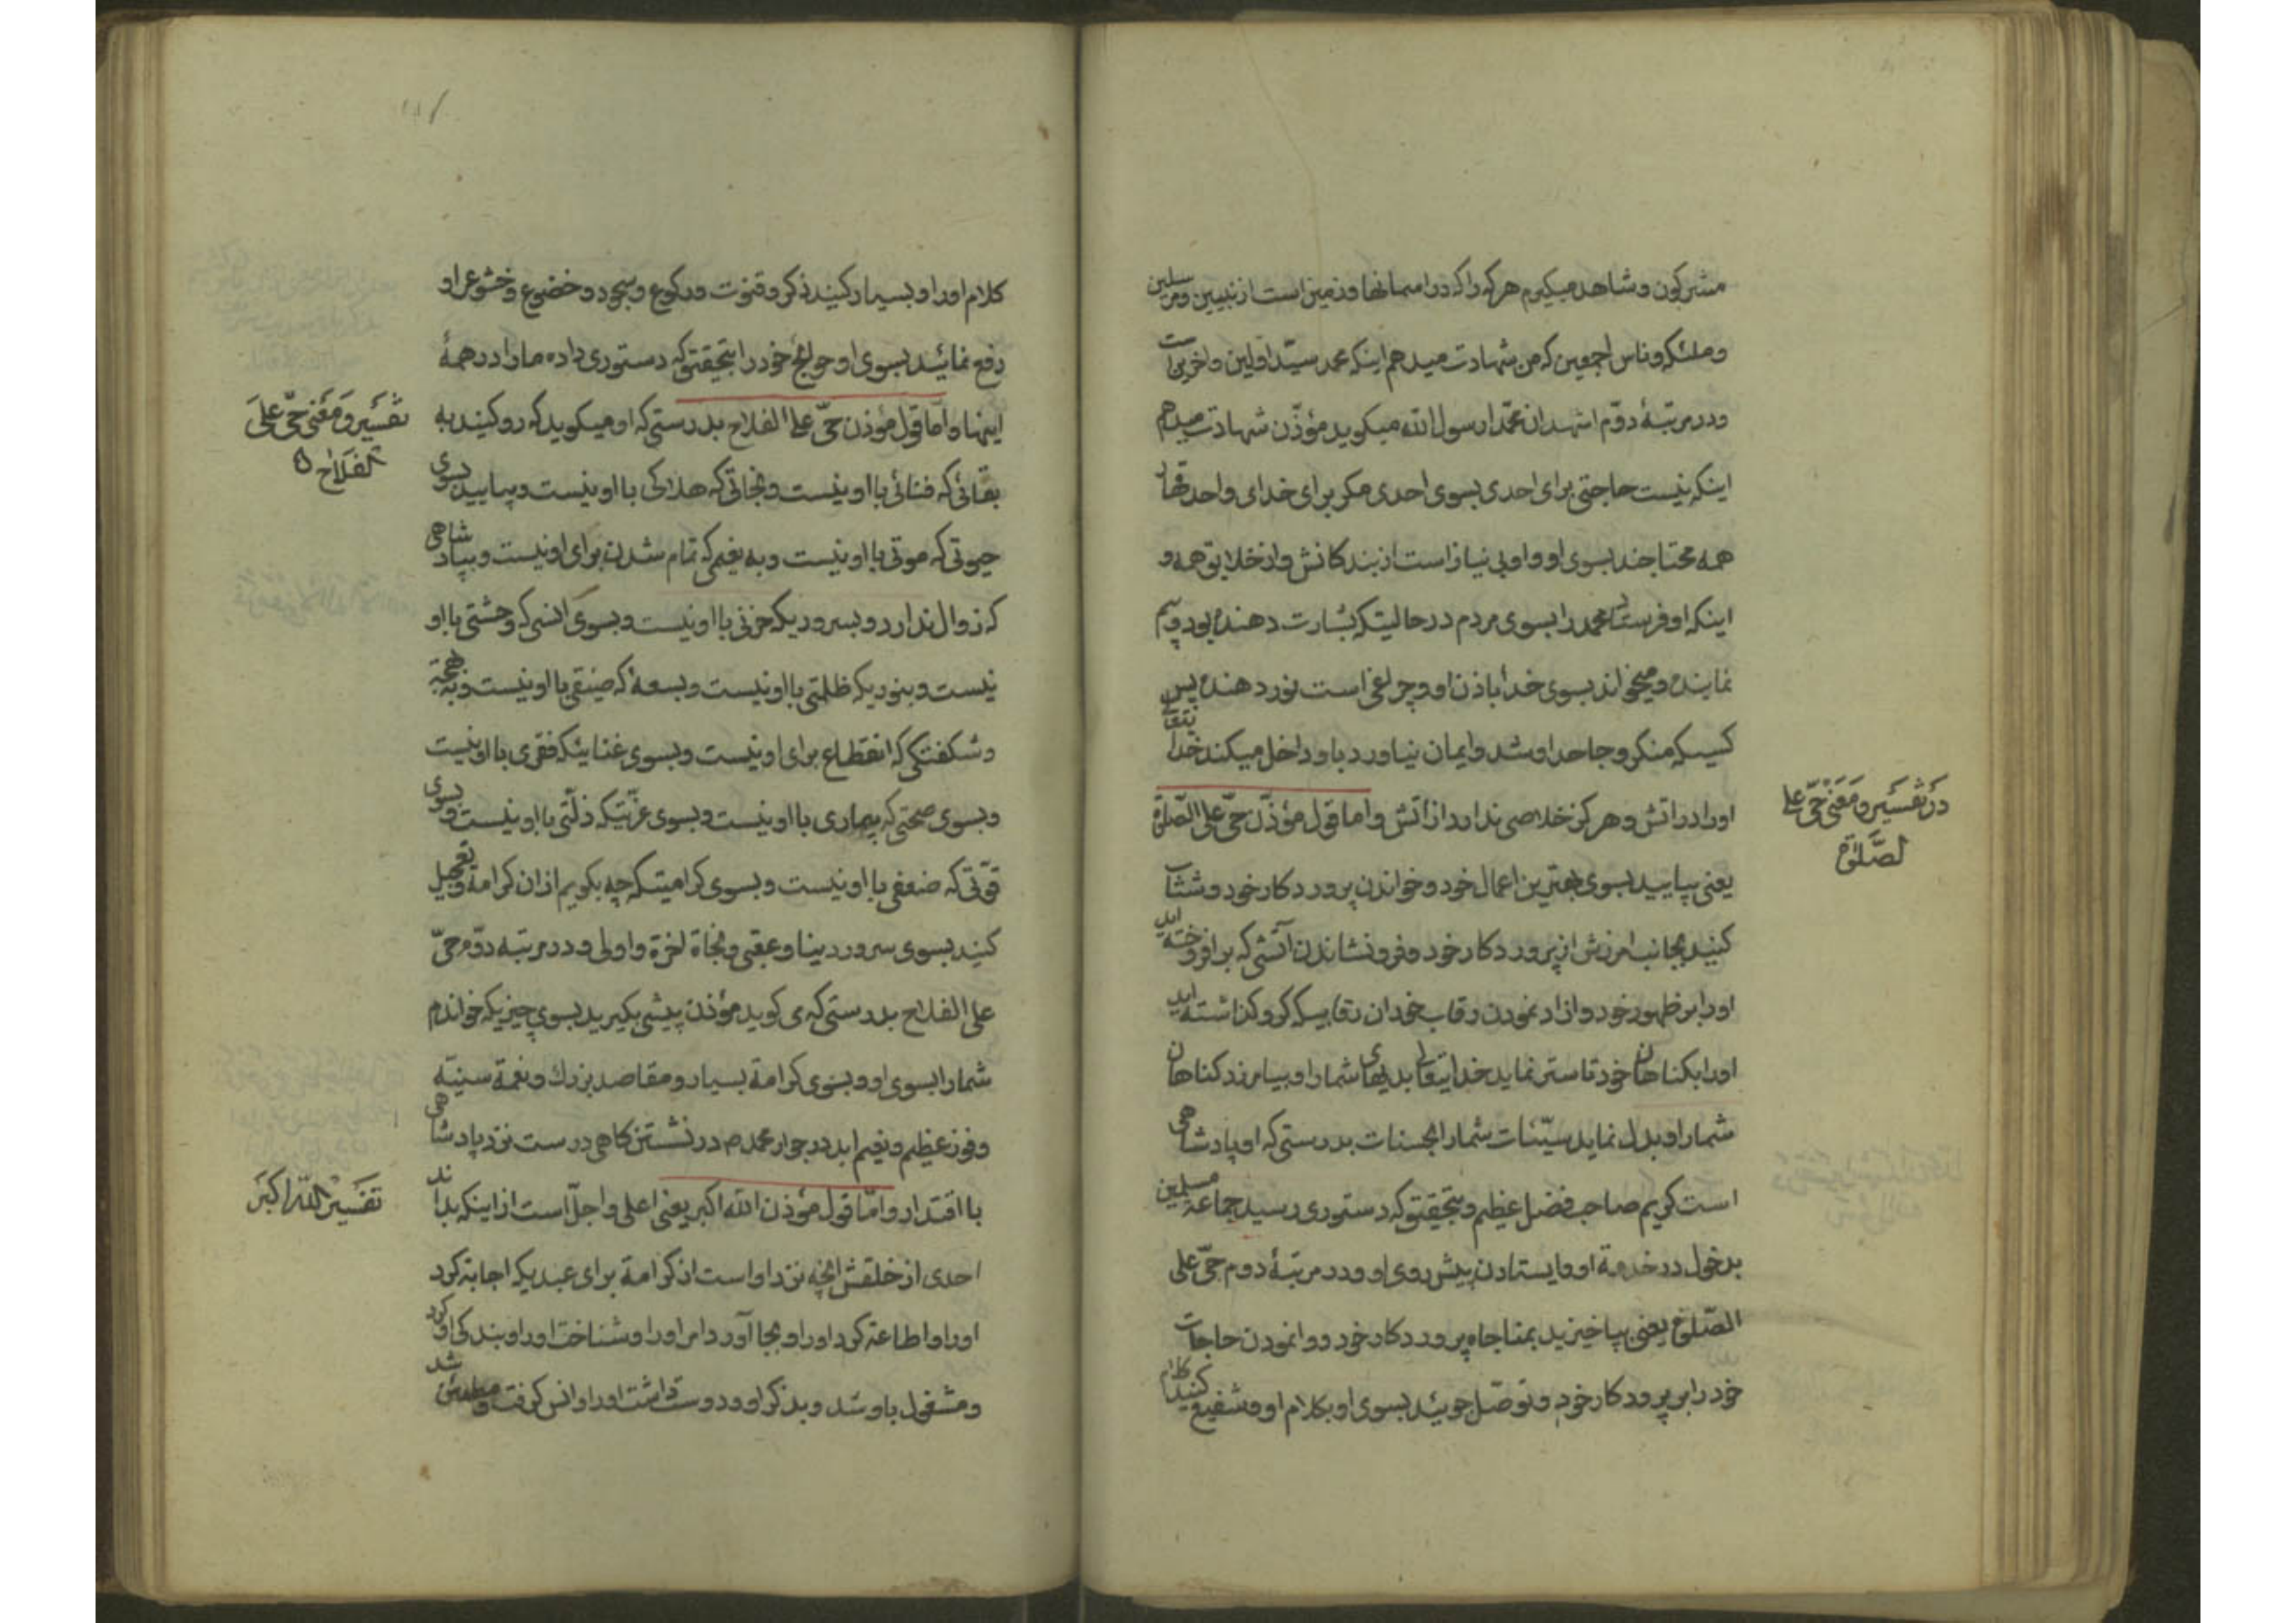 مشرکون و شاهد میکیرم هرکه را که در اسمانها و زمین است از نبیین و مرسلین
و ملئکه و ناس اجمعین که من شهادت میدهم اینکه محمد سیّد اولین و اخرین است
و در مرتبهٔ دوّم اشهد ان محمّدا رسول الله میکوید مؤذّن شهادت میدهم
اینکه نیست حاجتی برای احدی بسوی احدی مکر برای خدای واحد قهار
همه محتاجند بسوی او و او بی نیاز است از بندکانش و از خلایق همه و
اینکه او فرستاد محمد را بسوی مردم در حالتیکه بشارت دهنده بود و بیم
نماینده و میخواند بسوی خدا باذن او و چراغی است نور دهنده پس
کسیکه منکر و جاحد او شد و ایمان نیاورد باو داخل میکند خدا یتعالی
او را در اتش و هرکز خلاصی ندارد از آتش و اما قول مؤذّن حیّ علی الصّلوة
در تفسیر و معنی حیّ علی
الصّلوة
یعنی بیایید بسوی بهترین اعمال خود و خواندن پروردکار خود و شتاب
کنید بجانب امرزش از پروردکار خود و فرونشاندن آتشی که برافروخته اید
او را بر ظهور خود و ازاد نمودن رقاب خودان رقابیکه کرو کذاشته اید
او را بکناهان خود تا ستر نماید خدا یتعالی بدیهای شما را و بیامرزد کناهان
شما را و بدل نماید سیّئات شما را بحسنات بدرستی که او پادشاهی
است کریم صاحب فضل عظیم و بتحقیق که دستوری رسید جماعة مسلمین
بدخول در خدمة او و ایستادن پیش روی او و در مرتبهٔ دوم حیّ علی
الصّلوة یعنی بپا خیزید بمناجاه پروردکار خود و وانمودن حاجات
خود را بر پروردکار خود و توصّل جوئید بسوی او بکلام او و شفیع کنید کلام
کلام او را و بسیار کنید ذکر و قنوت و رکوع و سجود و خضوع و خشوع او
رفع نمائید بسوی او حوایج خود را بتحقیق که دستوری داده ما را در همهٔ
اینها و امّا قول مؤذن حیّ علی الفلاح بدرستی که او میکوید که رو کنید به
تفسیر و معنی حیّ علی
الفلاح
بقائی که فنائی با او نیست و نجاتی که هلاکی با او نیست و بیایید بسوی
حیوتی که موتی با او نیست و به نعیمی که تمام شدن برای او نیست و بپادشاهی
که زوال ندارد و بسروریکه حزنی با او نیست و بسوی انسی که وحشتی با او
نیست و بنوریکه ظلمتی با او نیست و بسعهٔ که ضیقی با او نیست و به بهجة
و شکفتکی که انقطاع برای او نیست و بسوی غنائیکه فقری با او نیست
و بسوی صحتی که بیماری با او نیست و بسوی عزّتیکه ذلّتی با او نیست و بسوی
قوّتی که ضعفی با او نیست و بسوی کرامیتکه چه بکویم از ان کرامة و تعجیل
کنید بسوی سرور دینا و عقبی و نجاة اخرة و اولی و در مرتبه دوّم حیّ
علی الفلاح بدرستی که می کوید مؤذن پیشی بکیرید بسوی چیزیکه خواندم
شما را بسوی او و بسوی کرامة بسیار و مقاصد بزرك و نعمة سنیّه
و فوز عظیم و نعیم ابد در جوار محمد م در نشستن کاهی درست نزد پادشاهی
با اقتدار و امّا قول مؤذن الله اکبر یعنی اعلی و اجلّ است از اینکه بداند
تفسیر الله اکبر
احدی از خلقش انچه نزد او است از کرامة برای عبدیکه اجابة کرد
او را و اطاعة کرد او را و بجا آورد امر او را و شناخت او را و بندکی او کرد
و مشغول باو شد و بذکر او و دوست داشت او را و انس کرفت و شد